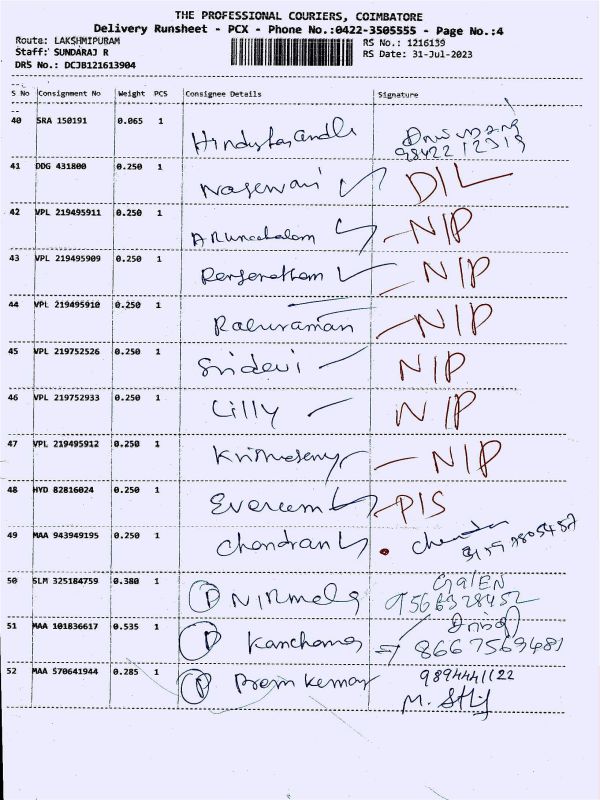 THE PROFESSIONAL COURIERS, COIMBATORE
Delivery Runsheet - PCX - Phone No.:0422-3505555 - Page No.:4
Route: LAKSHMIPURAM RS No.: 1216139
Staff: SUNDARAJ R RS Date: 31-Jul-2023
DRS No.: DCJB121613904
S No Consignment No Weight PCS Consignee Details Signature
40 SRA 150191 0.065 1
41 DDG 431800 0.250 1 Nagewari DIL
42 VPL 219495911 0.250 1 Arunachalam NIP
43 VPL 219495909 0.250 1 NIP
44 VPL 219495910 0.250 1 Raguraman NIP
45 VPL 219752526 0.250 1 Sridevi NIP
46 VPL 219752933 0.250 1 Lilly NIP
47 VPL 219495912 0.250 1 NIP
48 HYD 82816024 0.250 1 PIS
49 MAA 943949195 0.250 1 Chandran
50 SLM 325184759 0.380 1 P Nirmala
9566328452
51 MAA 101836617 0.535 1 P Kanchana
8667569481
52 MAA 570641944 0.285 1 P Prem Kumar 9894441122